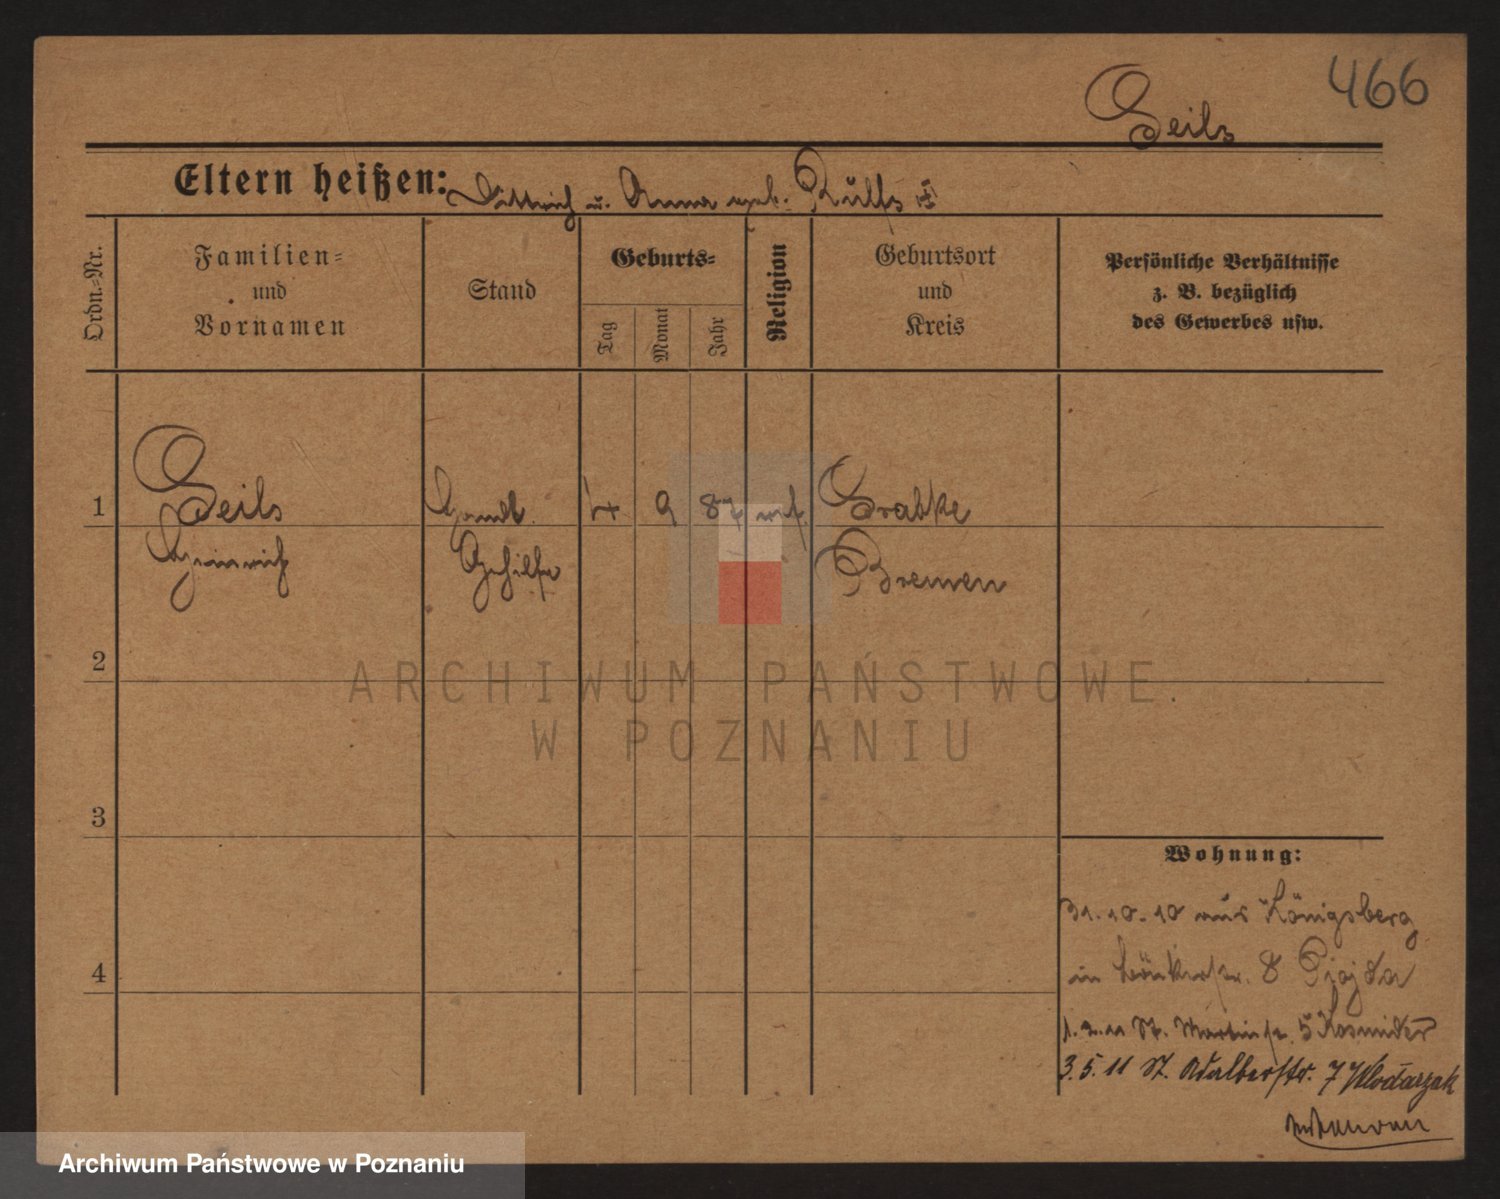 466
Seils
Eltern heißen: Dittrich u. Anna geb. Rulfs
Ordn.-Nr.
Familien-
und
Vornamen
Stand
Geburts-
Tag
Monat
Jahr
Religion
Geburtsort
und
Kreis
Persönliche Verhältnisse
z. B. bezüglich
des Gewerbes usw.
1
Seils
Heinrich
Handl.
Gehilfe
4
9
87
ref.
Grabke
Bremen
2
3
4
Wohnung:
31.10.10 aus Königsberg
in Bäckerstr. 8
1.2.11 St. Martinstr. 5 Kosmider
3.5.11 St. Adalbertstr. 7 Wlodarzak
ARCHIWUM PAŃSTWOWE
W POZNANIU
Archiwum Państwowe w Poznaniu